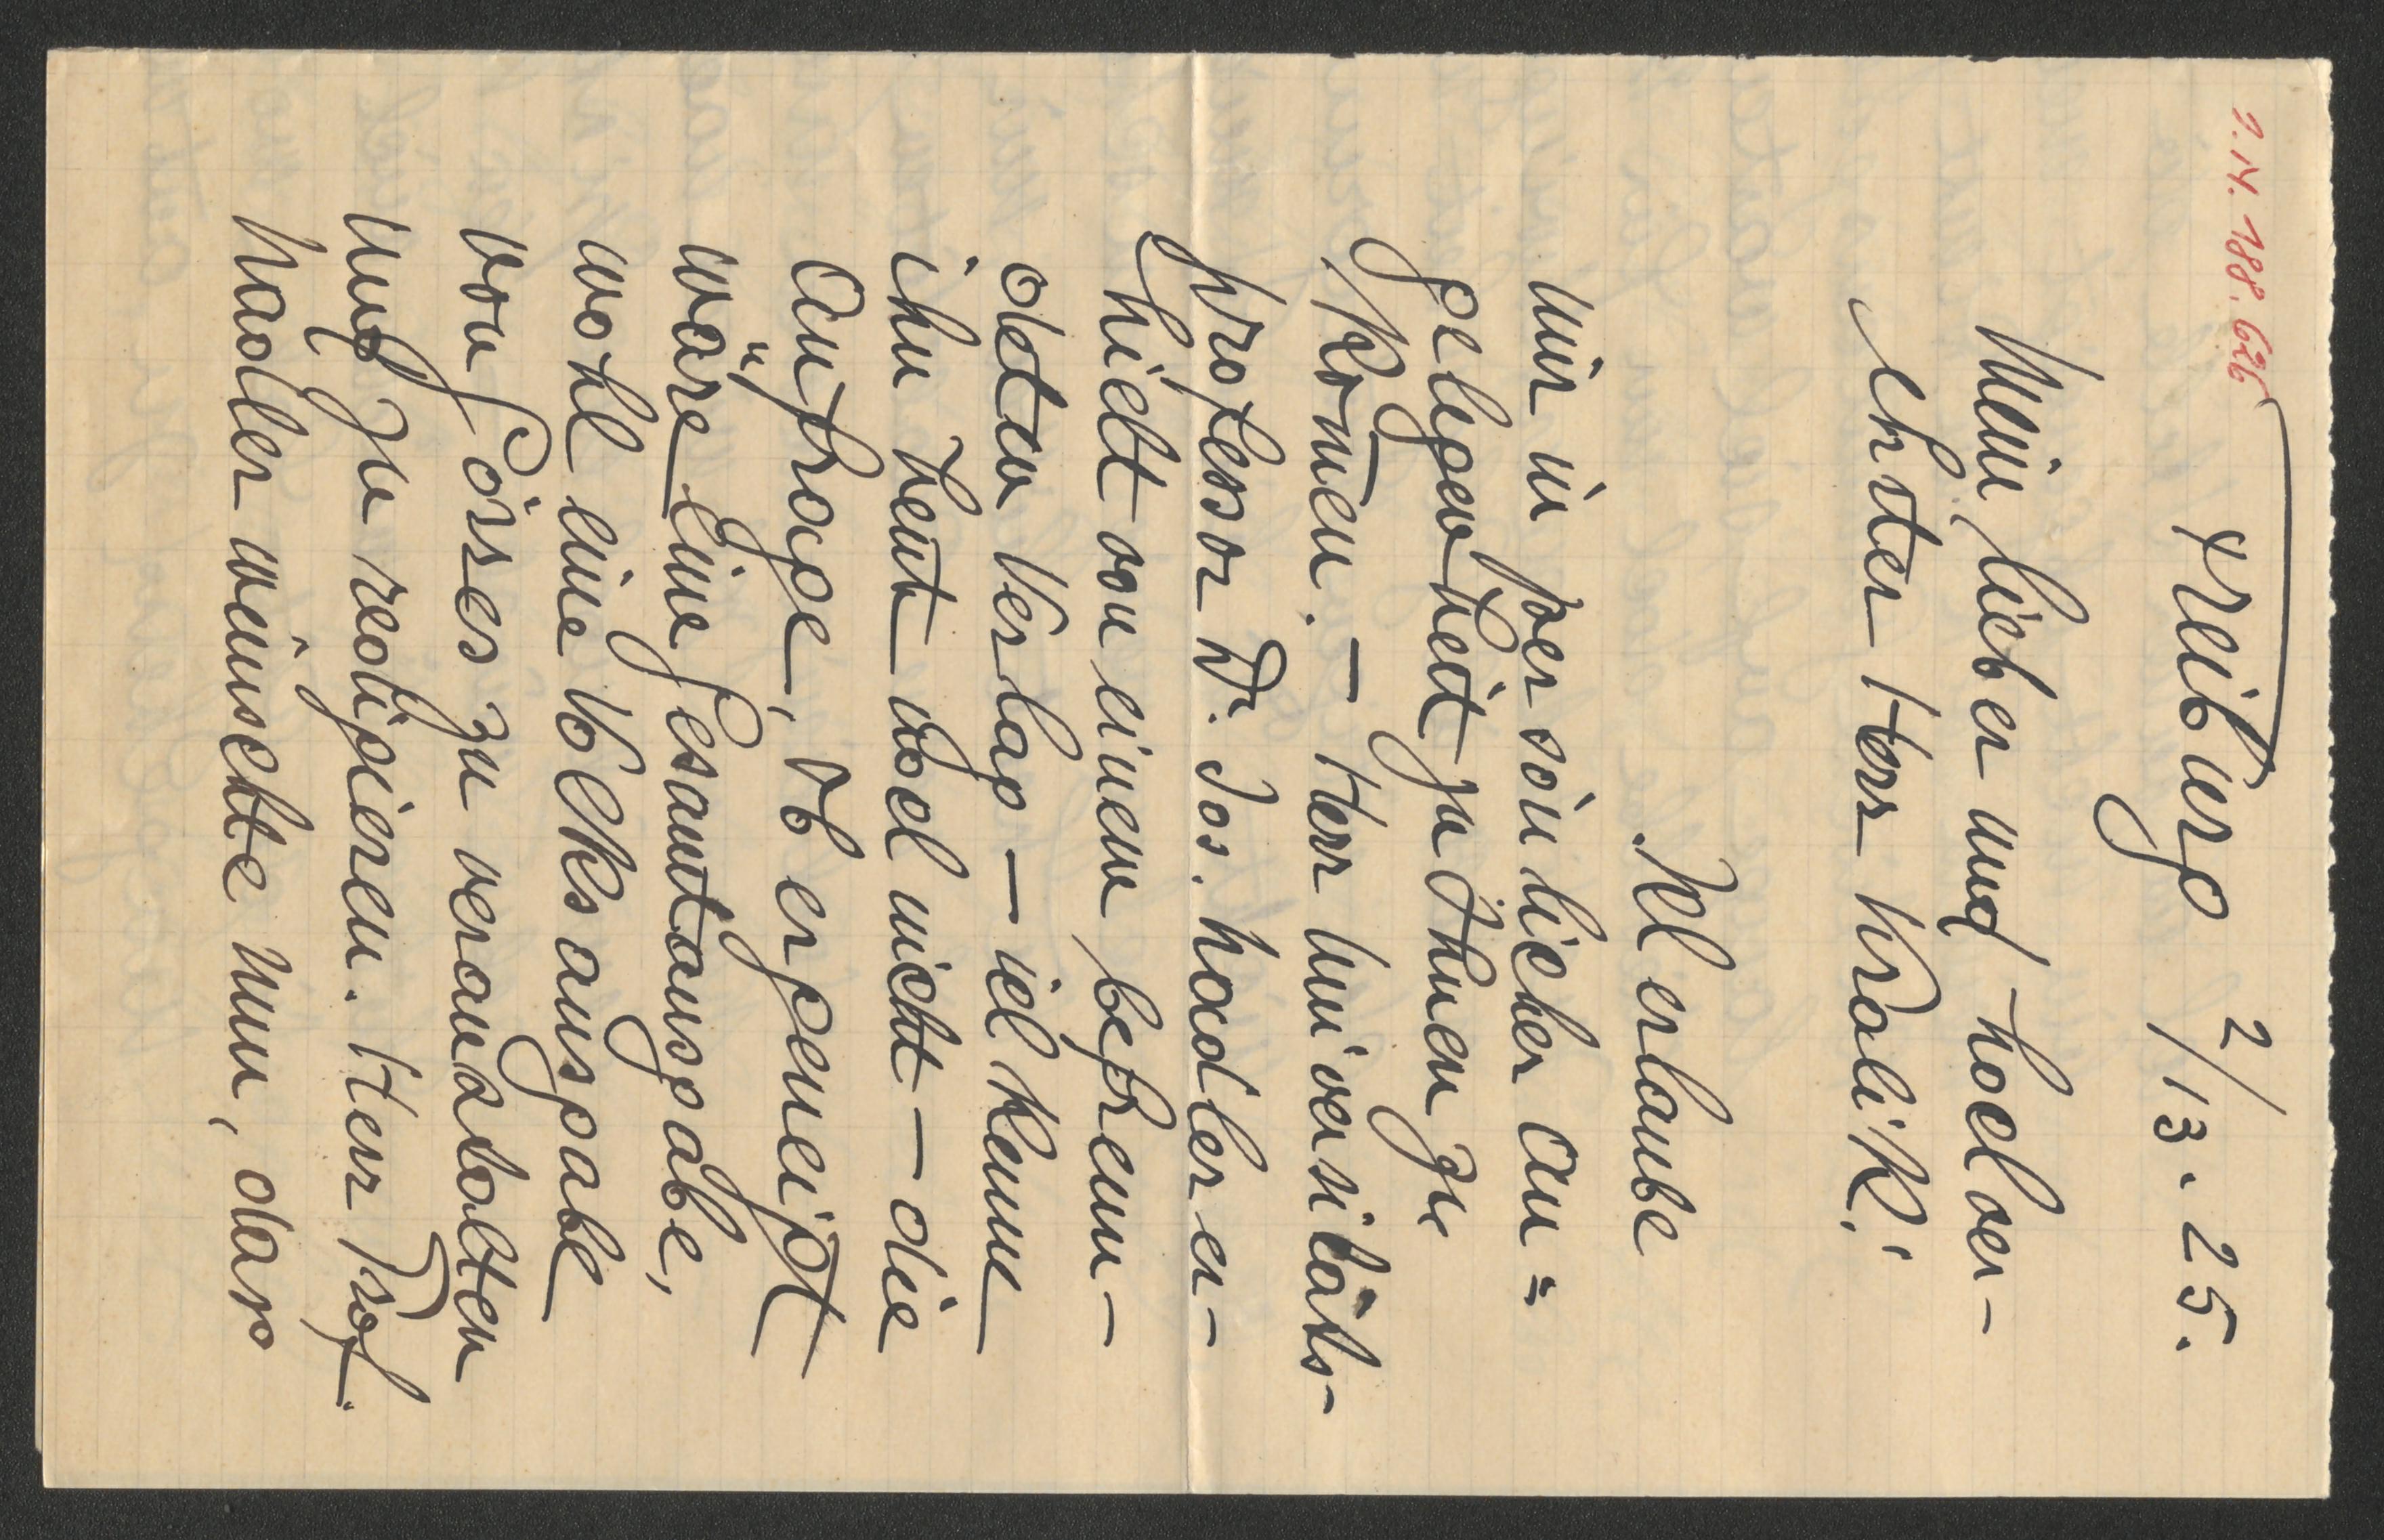 J.N. 188.626
Freiburg 2/13. 25.
Mein lieber und hochver-
ehrter Herr Kralik!
Ich erlaube
mir in persönlicher An=
gelegenheit zu Ihnen zu
kom̄en. – Herr Universitäts-
professor Dr. Jos. Nadler er-
hielt von einem befreun-
deten Verlag – ich kenne
ihn heut doch nicht – die
Anfrage, ob er geneigt
wäre eine Gesamtausgabe,
wohl eine Volksausgabe
von Görres zu veranstalten
und zu redigieren. Herr Prof.
Nadler wünschte nun, dass